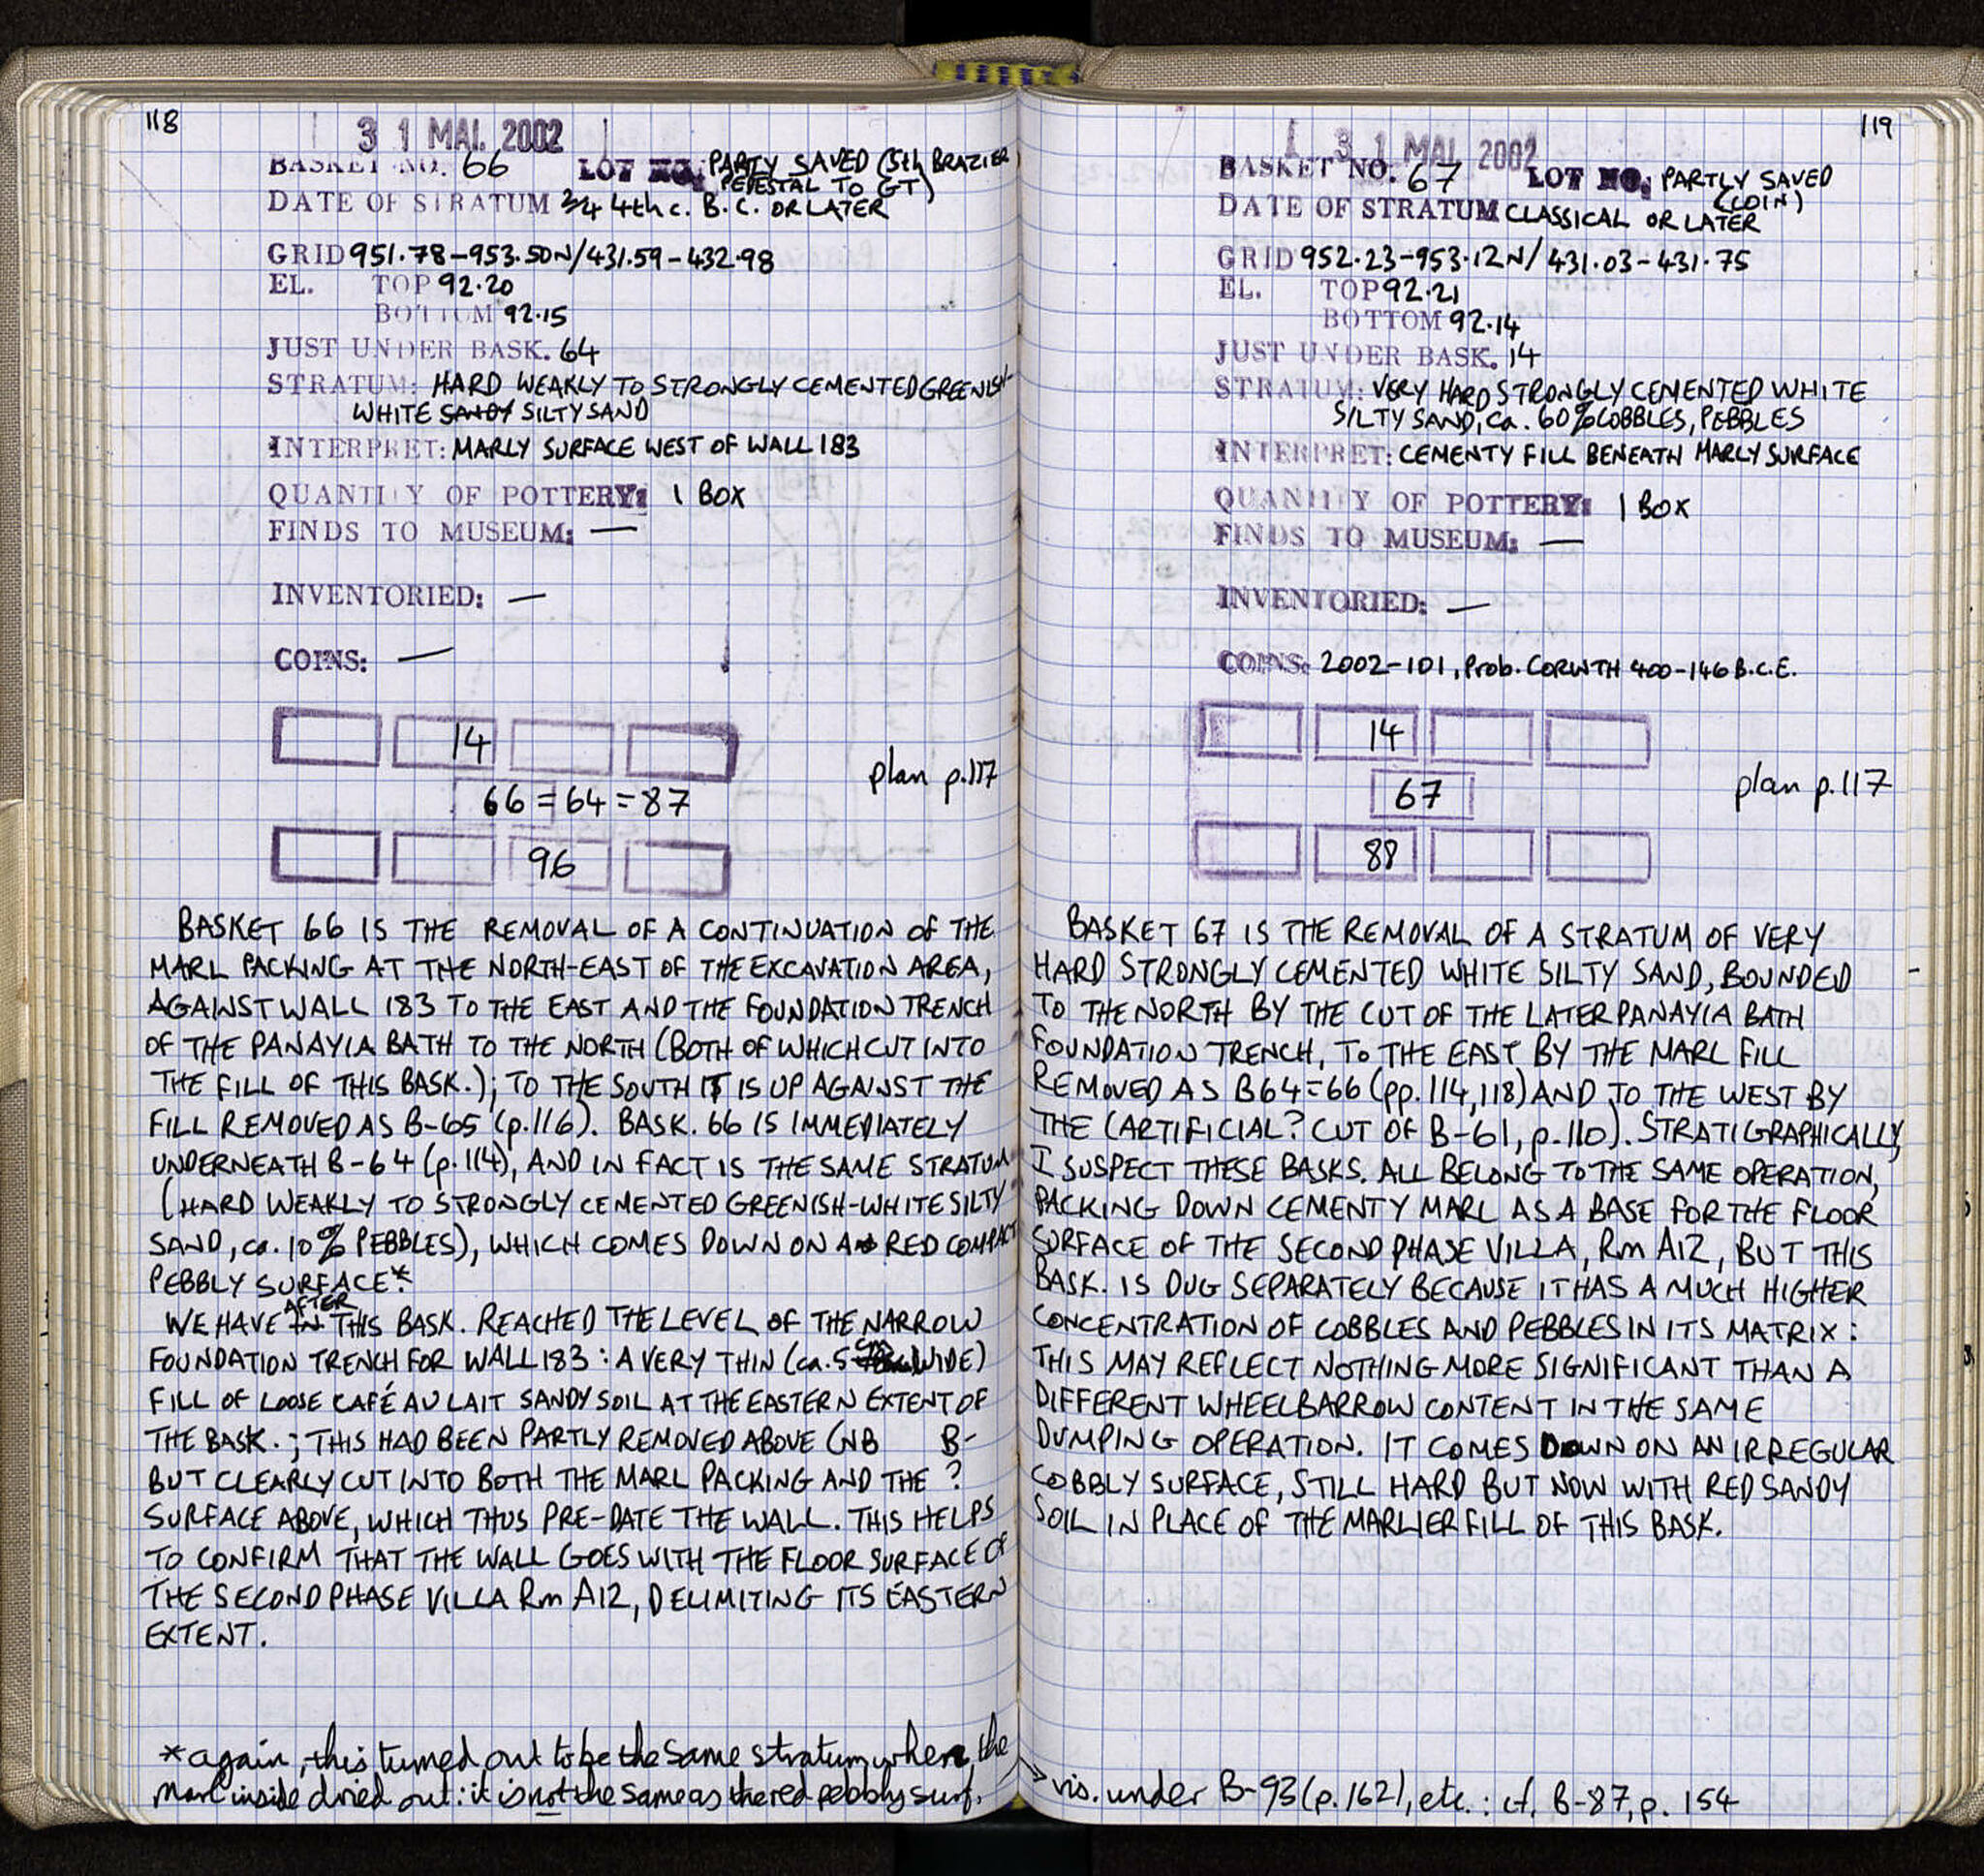 118
31 MAI 2002
BASKET NO. 66 LOT NO: PARTY SAVED (5th BRAZIER
PEDESTAL TO GT)
DATE OF STRATUM 3/4 4th c. B.C. OR LATER
GRID 951.78-953.50N/431.59-432.98
EL. TOP 92.20
BOTTOM 92.15
JUST UNDER BASK. 64
STRATUM: HARD WEAKLY TO STRONGLY CEMENTED GREENISH-
WHITE SANDY SILTY SAND
INTERPRET: MARLY SURFACE WEST OF WALL 183
QUANTITY OF POTTERY: 1 BOX
FINDS TO MUSEUM: —
INVENTORIED: —
COINS: —
14
66=64=87
plan p.117
96
BASKET 66 IS THE REMOVAL OF A CONTINUATION OF THE
MARL PACKING AT THE NORTH-EAST OF THE EXCAVATION AREA,
AGAINST WALL 183 TO THE EAST AND THE FOUNDATION TRENCH
OF THE PANAYIA BATH TO THE NORTH (BOTH OF WHICH CUT INTO
THE FILL OF THIS BASK.); TO THE SOUTH IT IS UP AGAINST THE
FILL REMOVED AS B-65 (p.116). BASK. 66 IS IMMEDIATELY
UNDERNEATH B-64 (p.114), AND IN FACT IS THE SAME STRATUM
(HARD WEAKLY TO STRONGLY CEMENTED GREENISH-WHITE SILTY
SAND, ca. 10% PEBBLES), WHICH COMES DOWN ON A RED COMPACT
PEBBLY SURFACE.*
WE HAVE IN AFTER THIS BASK. REACHED THE LEVEL OF THE NARROW
FOUNDATION TRENCH FOR WALL 183: A VERY THIN (ca. 5 cm WIDE)
FILL OF LOOSE CAFÉ AU LAIT SANDY SOIL AT THE EASTERN EXTENT OF
THE BASK.; THIS HAD BEEN PARTLY REMOVED ABOVE (NB B-
BUT CLEARLY CUT INTO BOTH THE MARL PACKING AND THE ?
SURFACE ABOVE, WHICH THUS PRE-DATE THE WALL. THIS HELPS
TO CONFIRM THAT THE WALL GOES WITH THE FLOOR SURFACE OF
THE SECOND PHASE VILLA Rm A12, DELIMITING ITS EASTERN
EXTENT.
*again, this turned out to be the same stratum when the
marl inside dried out: it is not the same as the red pebbly surf.
119
31 MAI 2002
BASKET NO. 67 LOT NO: PARTLY SAVED
(COIN)
DATE OF STRATUM CLASSICAL OR LATER
GRID 952.23-953.12N/431.03-431.75
EL. TOP 92.21
BOTTOM 92.14
JUST UNDER BASK. 14
STRATUM: VERY HARD STRONGLY CEMENTED WHITE
SILTY SAND, ca. 60% COBBLES, PEBBLES
INTERPRET: CEMENTY FILL BENEATH MARLY SURFACE
QUANTITY OF POTTERY: 1 BOX
FINDS TO MUSEUM: —
INVENTORIED: —
COINS: 2002-101, Prob. CORINTH 400-146 B.C.E.
14
67
plan p.117
88
BASKET 67 IS THE REMOVAL OF A STRATUM OF VERY
HARD STRONGLY CEMENTED WHITE SILTY SAND, BOUNDED
TO THE NORTH BY THE CUT OF THE LATER PANAYIA BATH
FOUNDATION TRENCH, TO THE EAST BY THE MARL FILL
REMOVED AS B64=66 (pp.114,118) AND TO THE WEST BY
THE (ARTIFICIAL? CUT OF B-61, p.110). STRATIGRAPHICALLY,
I SUSPECT THESE BASKS. ALL BELONG TO THE SAME OPERATION,
PACKING DOWN CEMENTY MARL AS A BASE FOR THE FLOOR
SURFACE OF THE SECOND PHASE VILLA, Rm A12, BUT THIS
BASK. IS DUG SEPARATELY BECAUSE IT HAS A MUCH HIGHER
CONCENTRATION OF COBBLES AND PEBBLES IN ITS MATRIX:
THIS MAY REFLECT NOTHING MORE SIGNIFICANT THAN A
DIFFERENT WHEELBARROW CONTENT IN THE SAME
DUMPING OPERATION. IT COMES DOWN ON AN IRREGULAR
COBBLY SURFACE, STILL HARD BUT NOW WITH RED SANDY
SOIL IN PLACE OF THE MARLIER FILL OF THIS BASK.
→vis. under B-93 (p.162), etc.: cf. B-87, p. 154